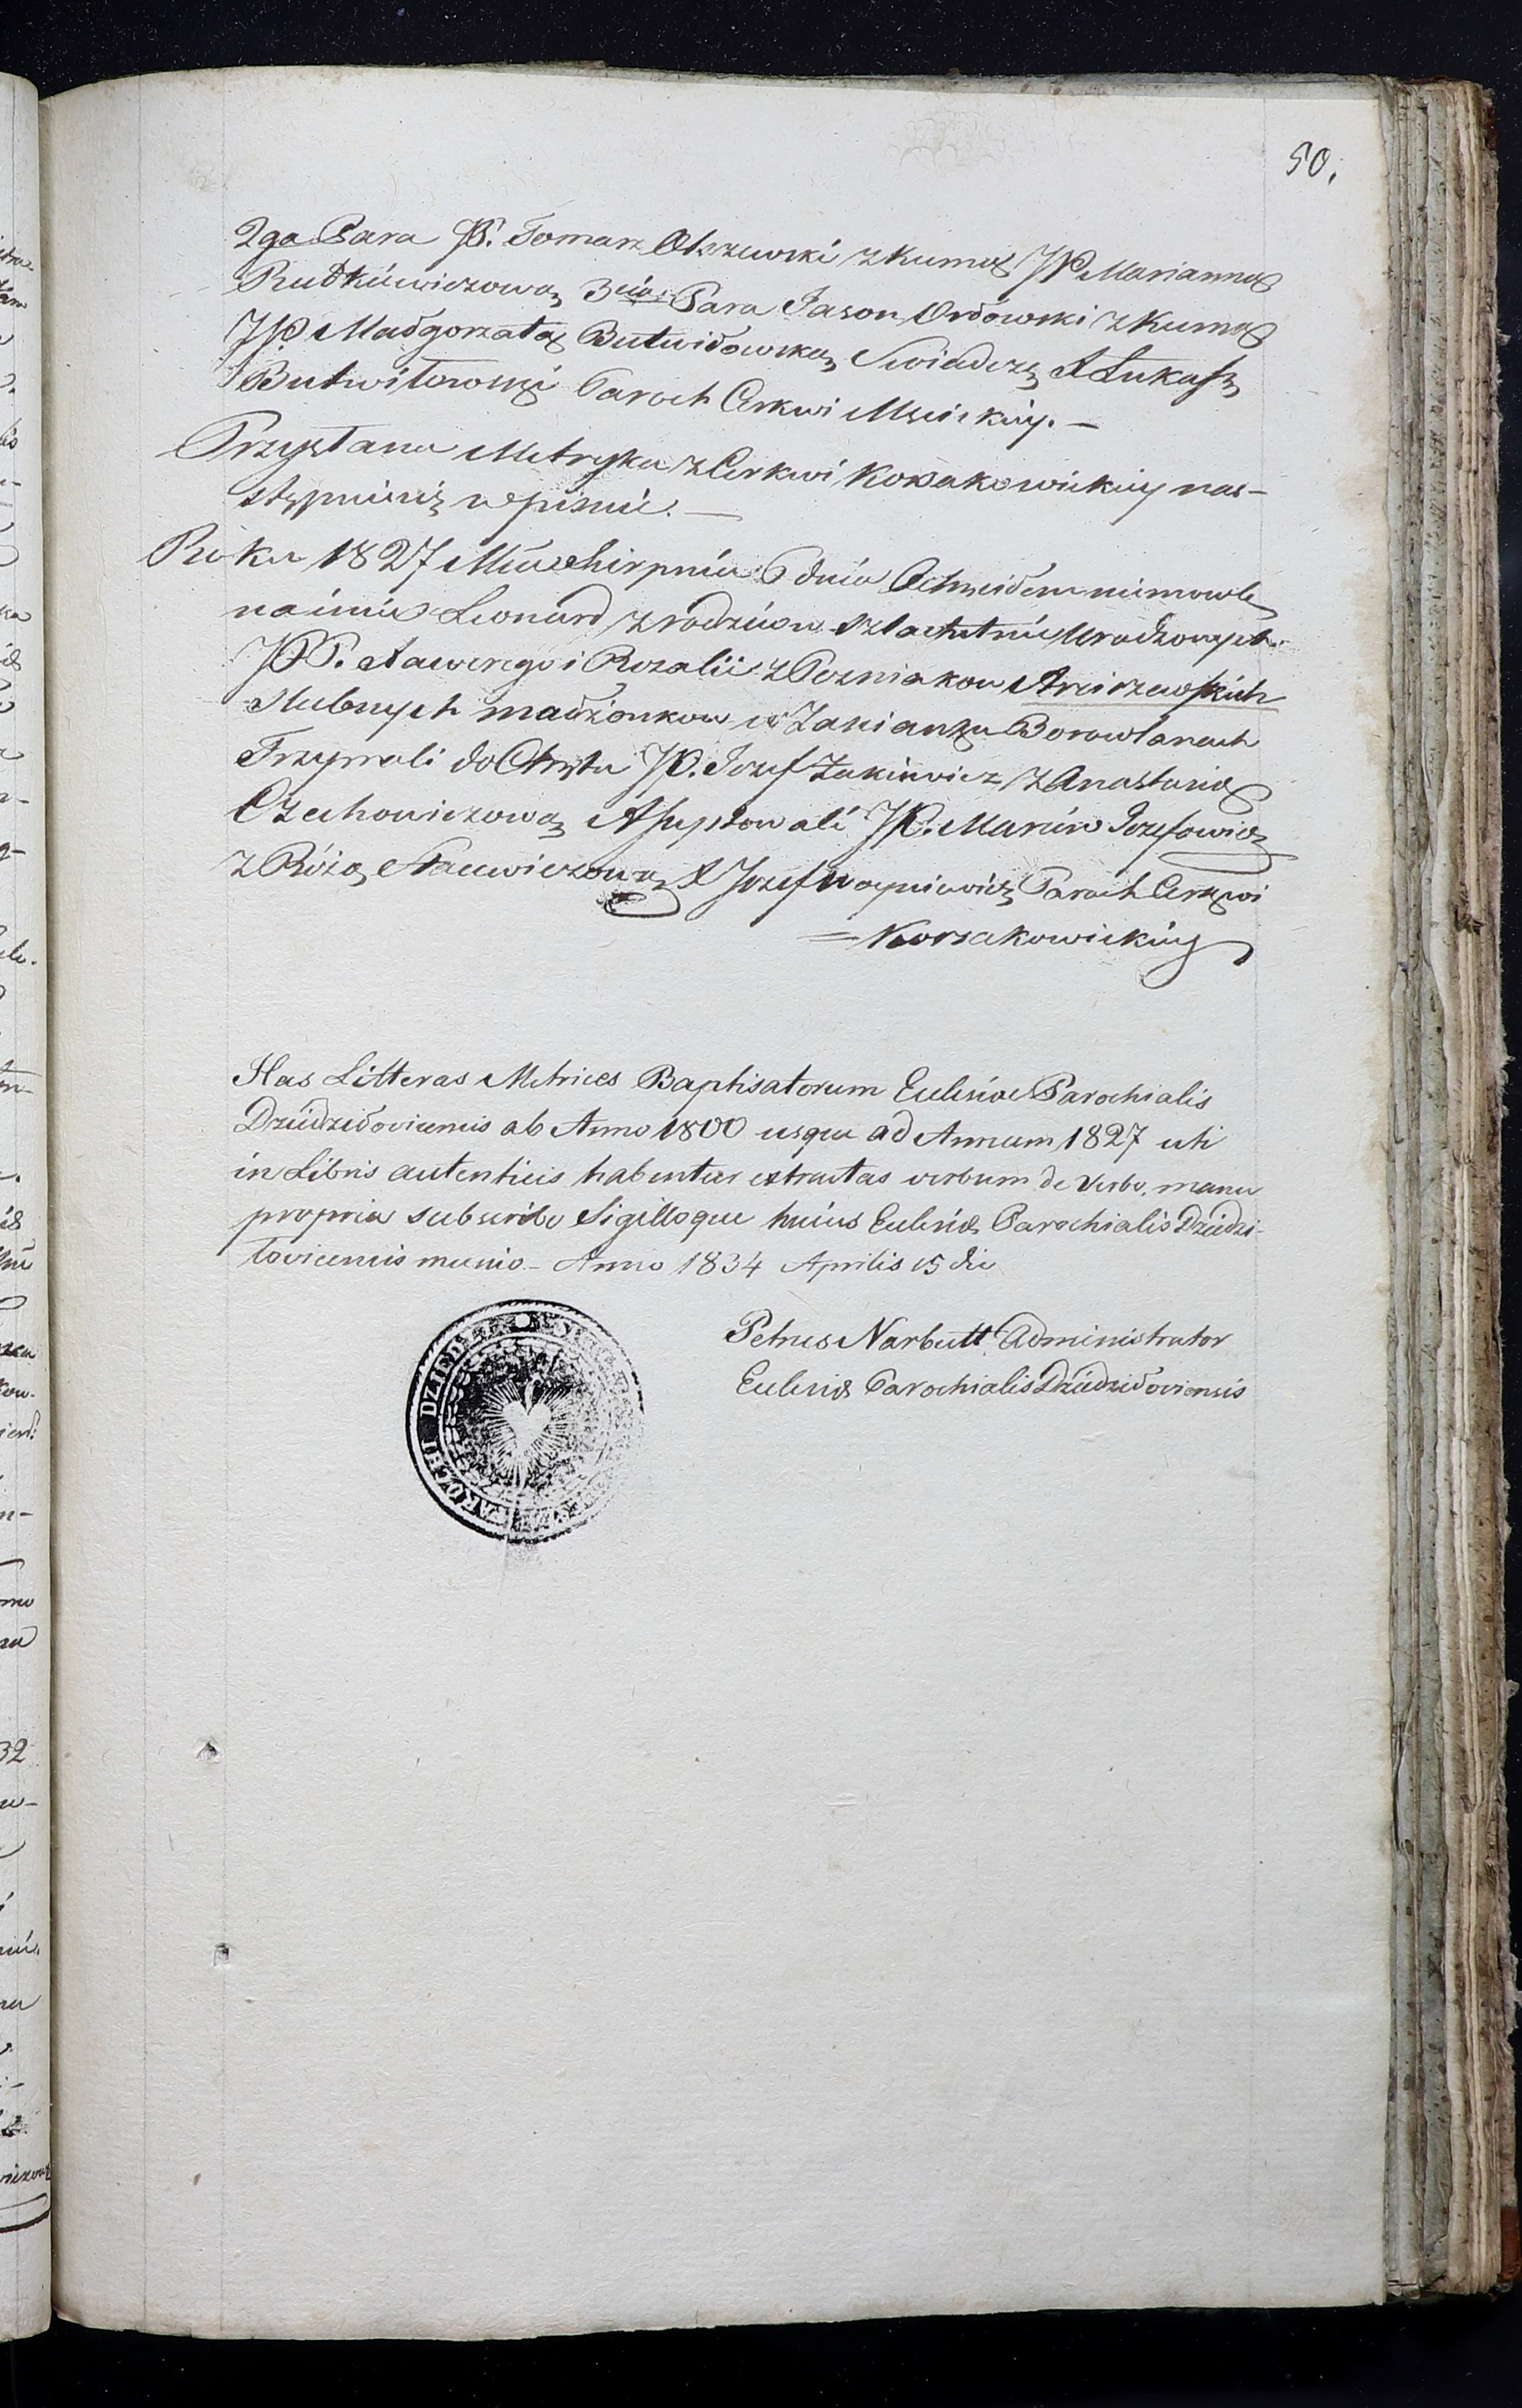 50.
2ga Para JP. Tomasz Olszewski z Kumą JP Marianną
Rutkiewiczową 3cia Para Jason Orłowski z Kumą
JP Małgorzatą Butwiłowską Swiadczę X Łukasz
Butwiłowski Paroch Cerkwi Mscickiey. —
Przysłana Metryka z Cerkwi Korsakowickiey nas-
stępnie się wpisuie. —
Roku 1827 Mca Sierpnia 6 dnia Ochrciłem niemowle
na imie Leonard z rodziców Szlachetnie Urodzonych
JPP. Xawerego i Rozalii z Pozniakow Arciszewskich
Slubnych małżonkow w Zascianku Borowlanach
Trzymali do Chrztu JP. Jozef Zukiewicz z Anastazią
Czechowiczową Assystowali JP. Marcin Jozefowicz
z Różą Nacewiczową X Jozef Woyniewicz Paroch Cerkwi
= Korsakowickiey
Has Litteras Metrices Baptisatorum Ecclesiae Parochialis
Dziedziłovicensis ab Anno 1800 usque ad Annum 1827 uti
in Libris autenticis habentur extractas verbum de verbo, manu
propria subscribo Sigilloque huius Ecclesiæ Parochialis Dziedzi-
lovicensis munio – Anno 1834 Aprilis 15 die
Petrus Narbutt Administrator
Ecclesiæ Parochialis Dziedziłoviensis
PAROCHI DZIEDZ